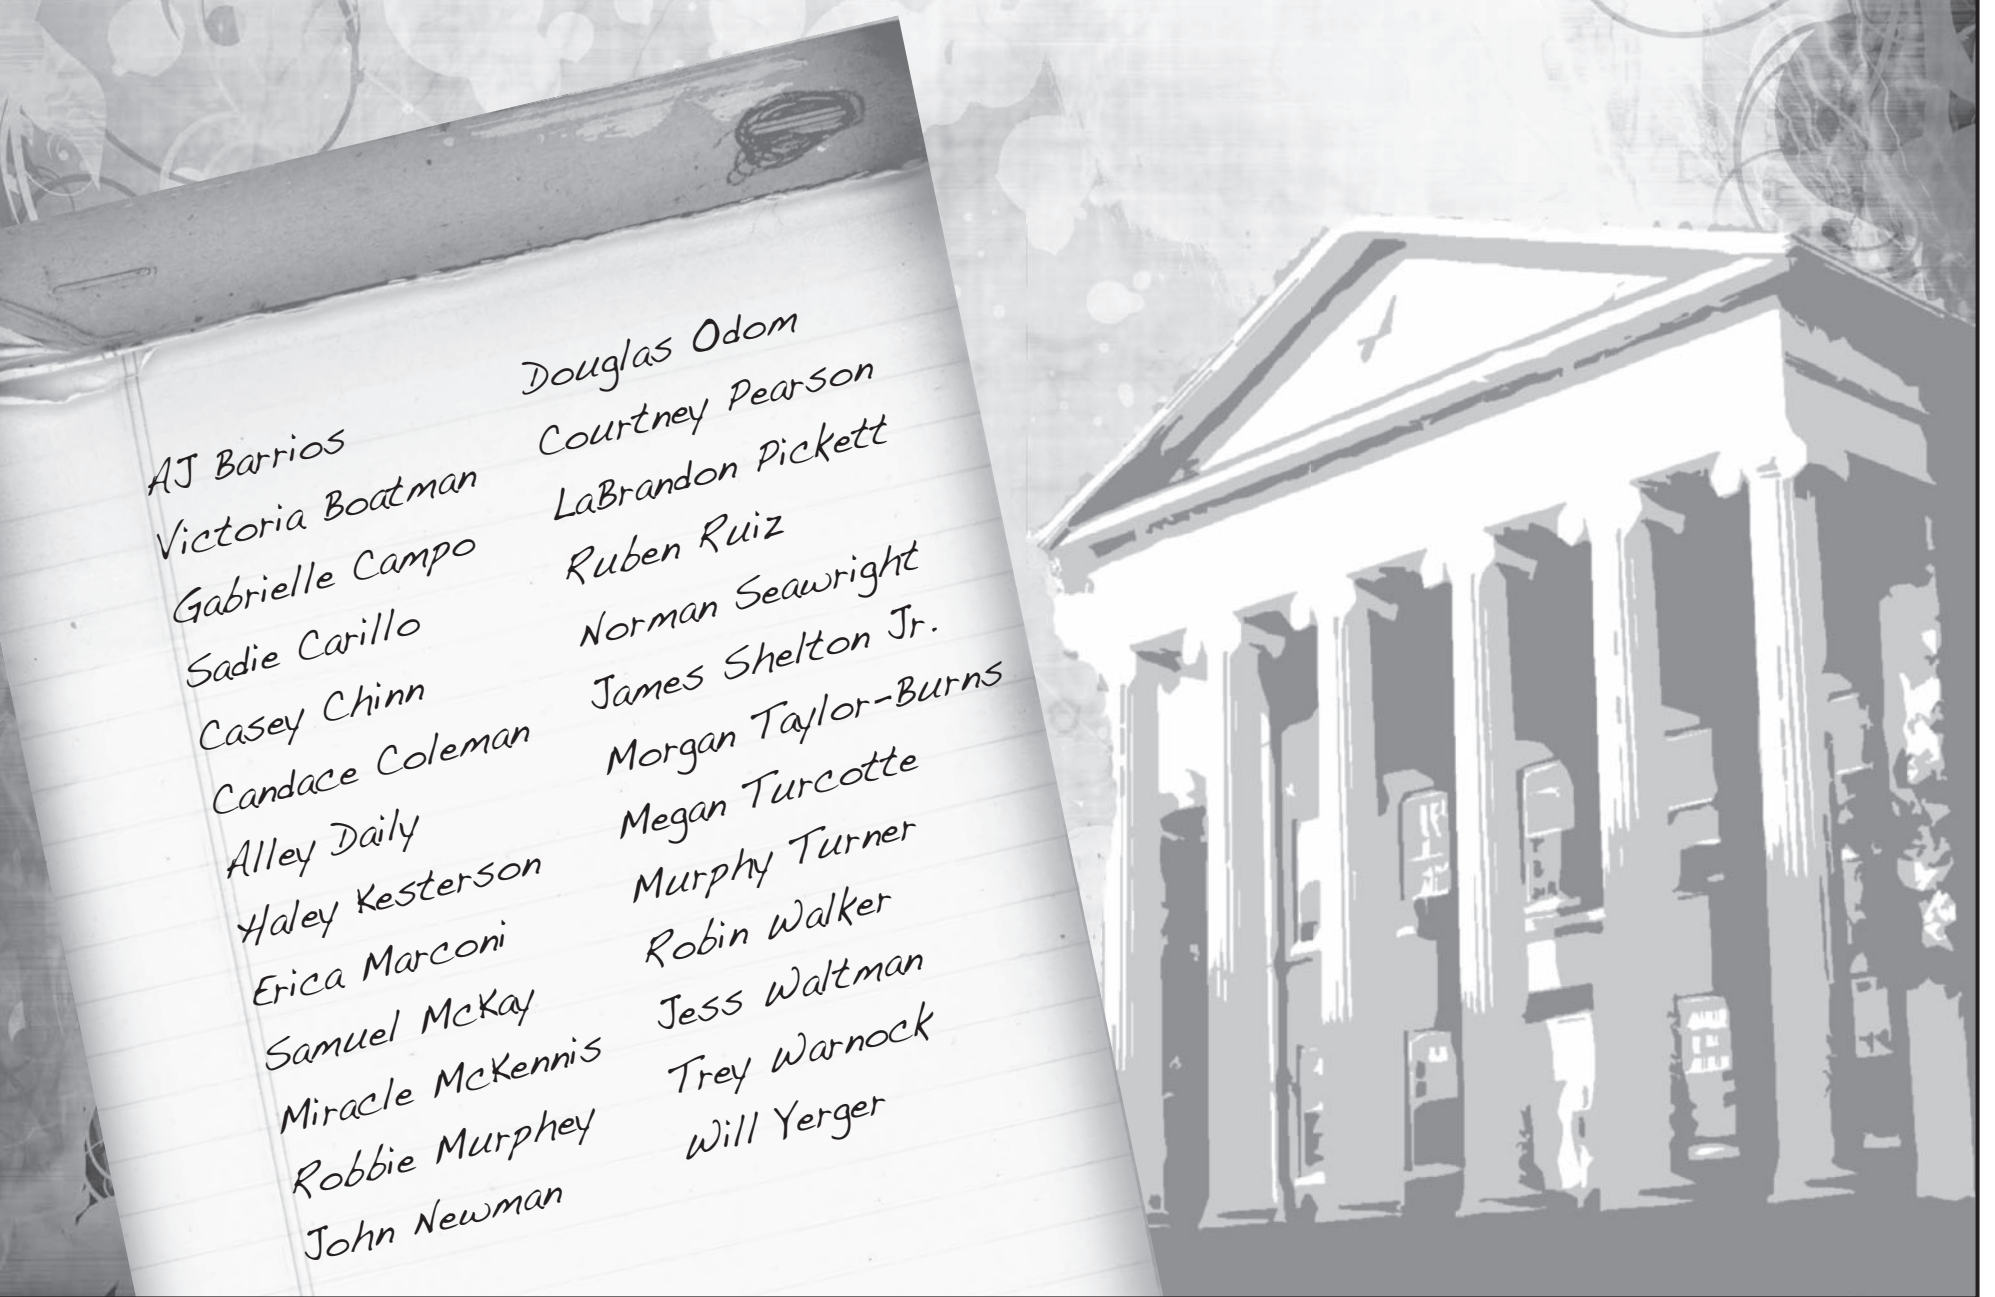 AJ Barrios
Victoria Boatman
Gabrielle Campo
Sadie Carillo
Casey Chinn
Candace Coleman
Alley Daily
Haley Kesterson
Erica Marconi
Samuel McKay
Miracle McKennis
Robbie Murphey
John Newman
Douglas Odom
Courtney Pearson
LaBrandon Pickett
Ruben Ruiz
Norman Seawright
James Shelton Jr.
Morgan Taylor-Burns
Megan Turcotte
Murphy Turner
Robin Walker
Jess Waltman
Trey Warnock
Will Yerger